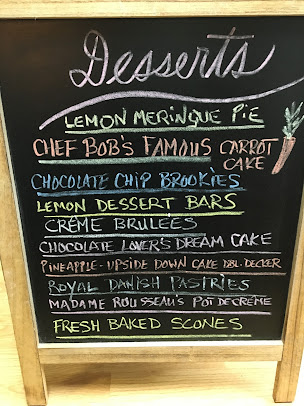 Desserts
LEMON MERINGUE PIE
CHEF BOB'S FAMOUS CARROT
CAKE
CHOCOLATE CHIP BROOKIES
LEMON DESSERT BARS
CRÉME BRULEES
CHOCOLATE LOVER'S DREAM CAKE
PINEAPPLE-UPSIDE DOWN CAKE DBL-DECKER
ROYAL DANISH PASTRIES
MADAME ROUSSEAU'S POT DE CRÉME
FRESH BAKED SCONES